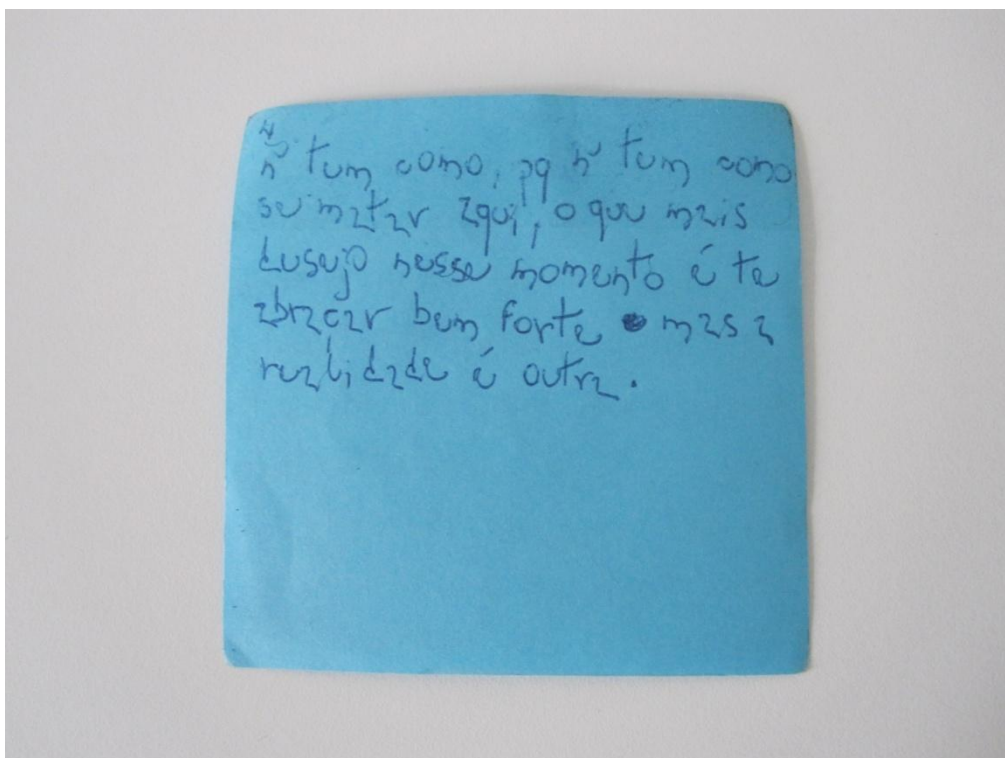 4
ñ tem como, pq ñ tem como
se matar aqui, o que mais
desejo nesse momento é te
abraçar bem forte mas a
realidade é outra.